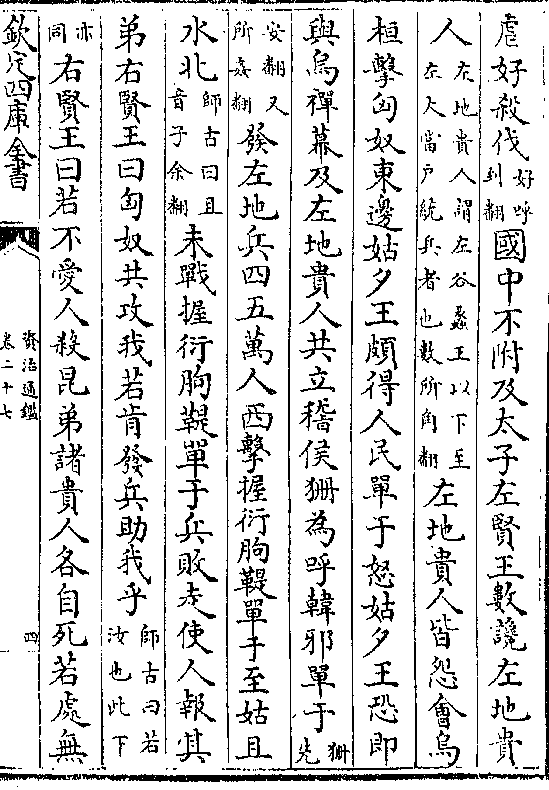 虐好殺伐好呼到翻國中不附及太子左賢王數讒左地貴
人左地貴人謂左谷蠡王以下至左大當户統兵者也數所角翻左地貴人皆怨會烏
桓擊匈奴東邊姑夕王頗得人民單于怒姑夕王恐即
與烏禪幕及左地貴人共立稽侯㹪為呼韓邪單于㹪先
安翻又所姦翻發左地兵四五萬人西擊握衍朐鞮單于至姑且
水北師古曰且音子余翻未戰握衍朐鞮單于兵敗走使人報其
弟右賢王曰匈奴共攻我若肯發兵助我乎師古曰若汝也此下
亦同右賢王曰若不愛人殺昆弟諸貴人各自死若處無
欽定四庫全書
資治通鑑
卷二十七
四